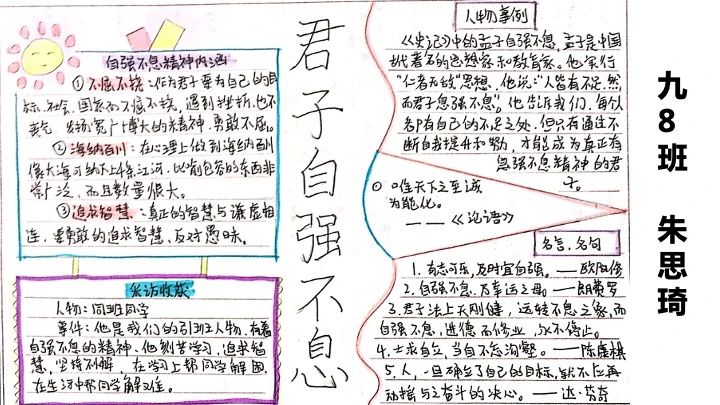 自强不息精神内涵
①不屈不挠：作为君子要为自己的目
标、社会、国家而不屈不挠，遇到挫折，也不
丧气，发扬宽广博大的精神，勇敢不屈。
②海纳百川：在心理上做到海纳百川
像大海可纳下条江河，比喻包容的东西非
常广泛，而且数量很大。
③追求智慧：真正的智慧与谦虚相
连，要勇敢的追求智慧，反对愚昧。
采访收获
人物：同班同学
事件：他是我们的引班人物，有着
自强不息的精神，他刻苦学习，追求智
慧，坚持不懈，在学习上帮同学解困，
在生活中帮同学解难。
君子自强不息
人物事例
《史记》中的孟子自强不息，孟子是中国
古代著名的思想家和教育家。他实行
"仁者无敌"思想，他说："人皆有不足，然
而君子恒强不息"，他告诉我们，每个人
都有自己的不足之处，但只有通过不
断自我提升和努力，才能成为真正有
自强不息精神的君
子。
唯天下之至诚
为能化。
——《论语》
名言、名句
1.有志可乐，及时宜自强。——欧阳修
2.自强不息，为幸运之母。——朗费罗
3.君子法上天刚健，运转不息之象，而
自强不息，进德修业，永不停止。
4.士求自立，当自不忘沟壑。——陈康祺
5.人，一旦确立了自己的目标，就不应再
动摇与之奋斗的决心。——达·芬奇
九8班 朱思琦